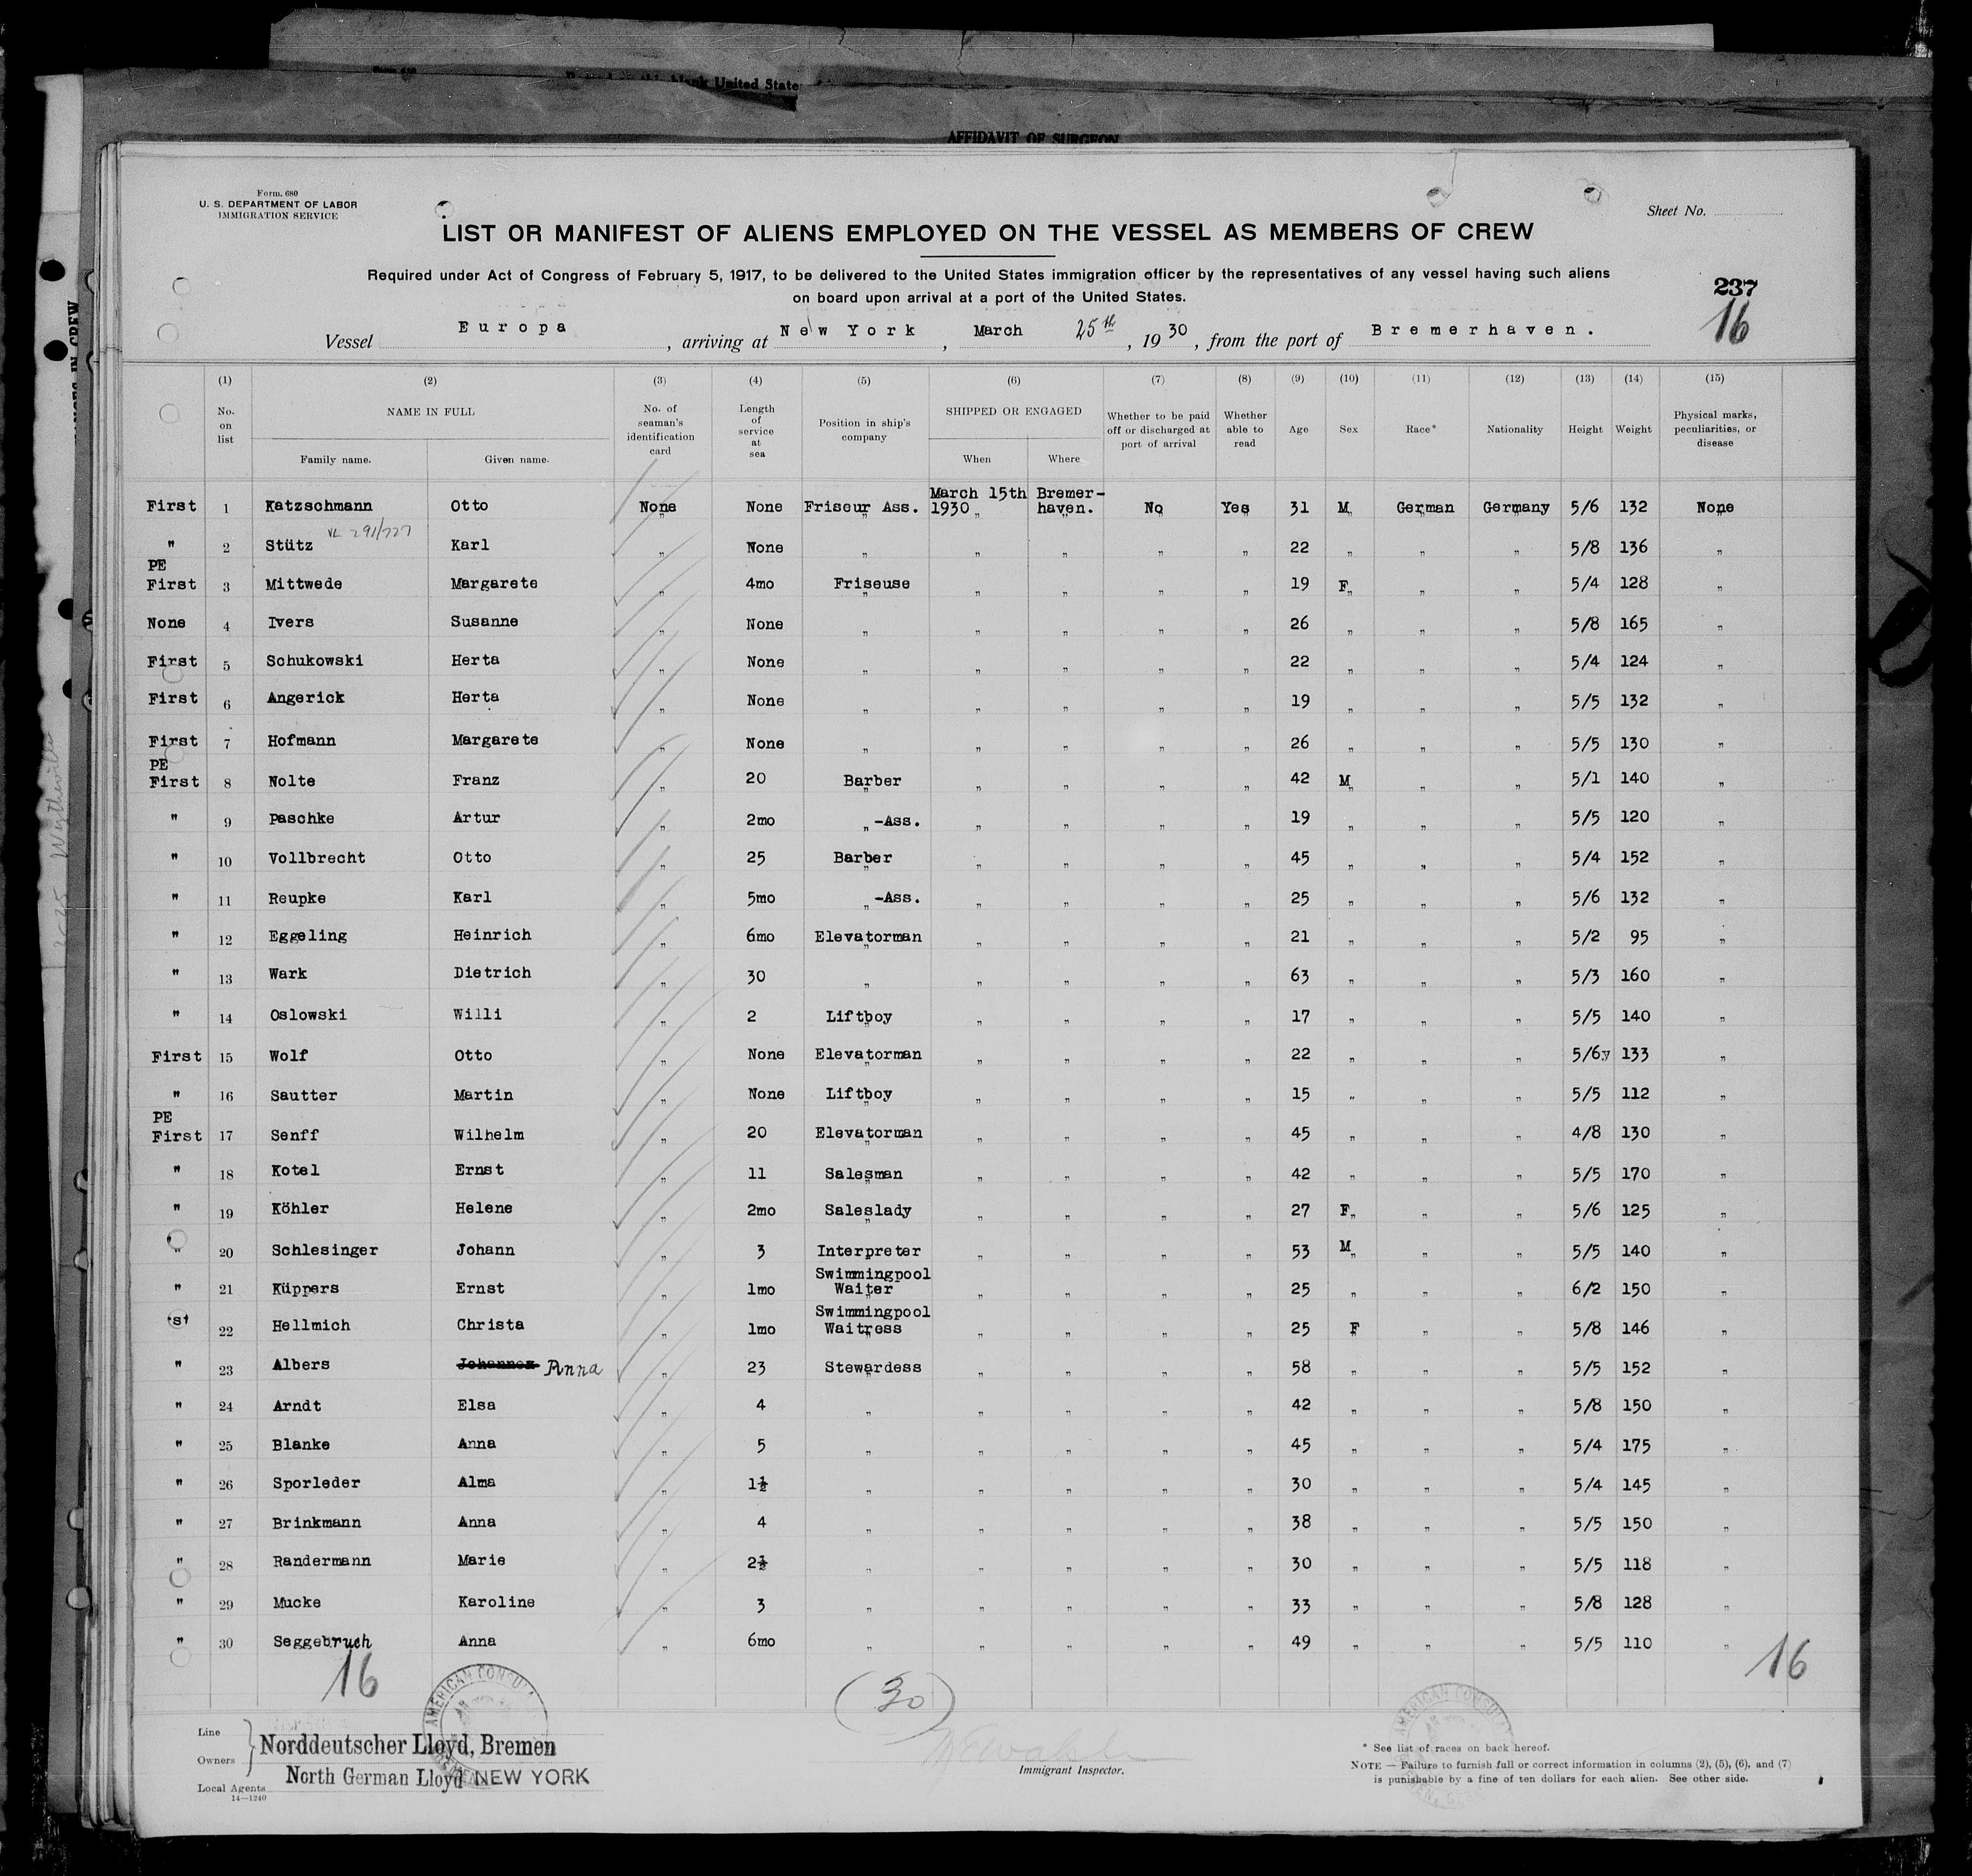 Form 680
United State
AFFIDAVIT OF SURGEON
Form. 680
U. S. DEPARTMENT OF LABOR
IMMIGRATION SERVICE
Sheet No.
LIST OR MANIFEST OF ALIENS EMPLOYED ON THE VESSEL AS MEMBERS OF CREW
Required under Act of Congress of February 5, 1917, to be delivered to the United States immigration officer by the representatives of any vessel having such aliens
on board upon arrival at a port of the United States.
237
16
Vessel Europa , arriving at New York , March 25th , 1930 , from the port of Bremerhaven.
(1) (2) (3) (4) (5) (6) (7) (8) (9) (10) (11) (12) (13) (14) (15)
No. on list NAME IN FULL Family name. Given name. No. of seaman's identification card Length of service at sea Position in ship's company SHIPPED OR ENGAGED When Where Whether to be paid off or discharged at port of arrival Whether able to read Age Sex Race* Nationality Height Weight Physical marks, peculiarities, or disease
First 1 Katzschmann Otto None None Friseur Ass. March 15th 1930 Bremer-haven. No Yes 31 M German Germany 5/6 132 None
" 2 Stütz Karl " None " " " " " 22 " " " 5/8 136 "
PE
First 3 Mittwede Margarete " 4mo Friseuse " " " " 19 F " " 5/4 128 "
None 4 Ivers Susanne " None " " " " " 26 " " " 5/8 165 "
First 5 Schukowski Herta " None " " " " " 22 " " " 5/4 124 "
First 6 Angerick Herta " None " " " " " 19 " " " 5/5 132 "
First 7 Hofmann Margarete " None " " " " " 26 " " " 5/5 130 "
PE
First 8 Nolte Franz " 20 Barber " " " " 42 M " " 5/1 140 "
" 9 Paschke Artur " 2mo "-Ass. " " " " 19 " " " 5/5 120 "
" 10 Vollbrecht Otto " 25 Barber " " " " 45 " " " 5/4 152 "
" 11 Reupke Karl " 5mo "-Ass. " " " " 25 " " " 5/6 132 "
" 12 Eggeling Heinrich " 6mo Elevatorman " " " " 21 " " " 5/2 95 "
" 13 Wark Dietrich " 30 " " " " " 63 " " " 5/3 160 "
" 14 Oslowski Willi " 2 Liftboy " " " " 17 " " " 5/5 140 "
First 15 Wolf Otto " None Elevatorman " " " " 22 " " " 5/6 133 "
" 16 Sautter Martin " None Liftboy " " " " 15 " " " 5/5 112 "
PE
First 17 Senff Wilhelm " 20 Elevatorman " " " " 45 " " " 4/8 130 "
" 18 Kotel Ernst " 11 Salesman " " " " 42 " " " 5/5 170 "
" 19 Köhler Helene " 2mo Saleslady " " " " 27 F " " 5/6 125 "
" 20 Schlesinger Johann " 3 Interpreter " " " " 53 M " " 5/5 140 "
" 21 Küppers Ernst " 1mo Swimmingpool Waiter " " " " 25 " " " 6/2 150 "
st 22 Hellmich Christa " 1mo Swimmingpool Waitress " " " " 25 F " " 5/8 146 "
" 23 Albers Anna " 23 Stewardess " " " " 58 " " " 5/5 152 "
" 24 Arndt Elsa " 4 " " " " " 42 " " " 5/8 150 "
" 25 Blanke Anna " 5 " " " " " 45 " " " 5/4 175 "
" 26 Sporleder Alma " 1½ " " " " " 30 " " " 5/4 145 "
" 27 Brinkmann Anna " 4 " " " " " 38 " " " 5/5 150 "
" 28 Randermann Marie " 2½ " " " " " 30 " " " 5/5 118 "
" 29 Mucke Karoline " 3 " " " " " 33 " " " 5/8 128 "
" 30 Seggebruch Anna " 6mo " " " " " 49 " " " 5/5 110 "
16 (30) 16
AMERICAN CONSUL
AMERICAN CONSUL
Line
Owners
Norddeutscher Lloyd, Bremen
Local Agents North German Lloyd NEW YORK
14—1240
Immigrant Inspector.
* See list of races on back hereof.
NOTE — Failure to furnish full or correct information in columns (2), (5), (6), and (7)
is punishable by a fine of ten dollars for each alien. See other side.